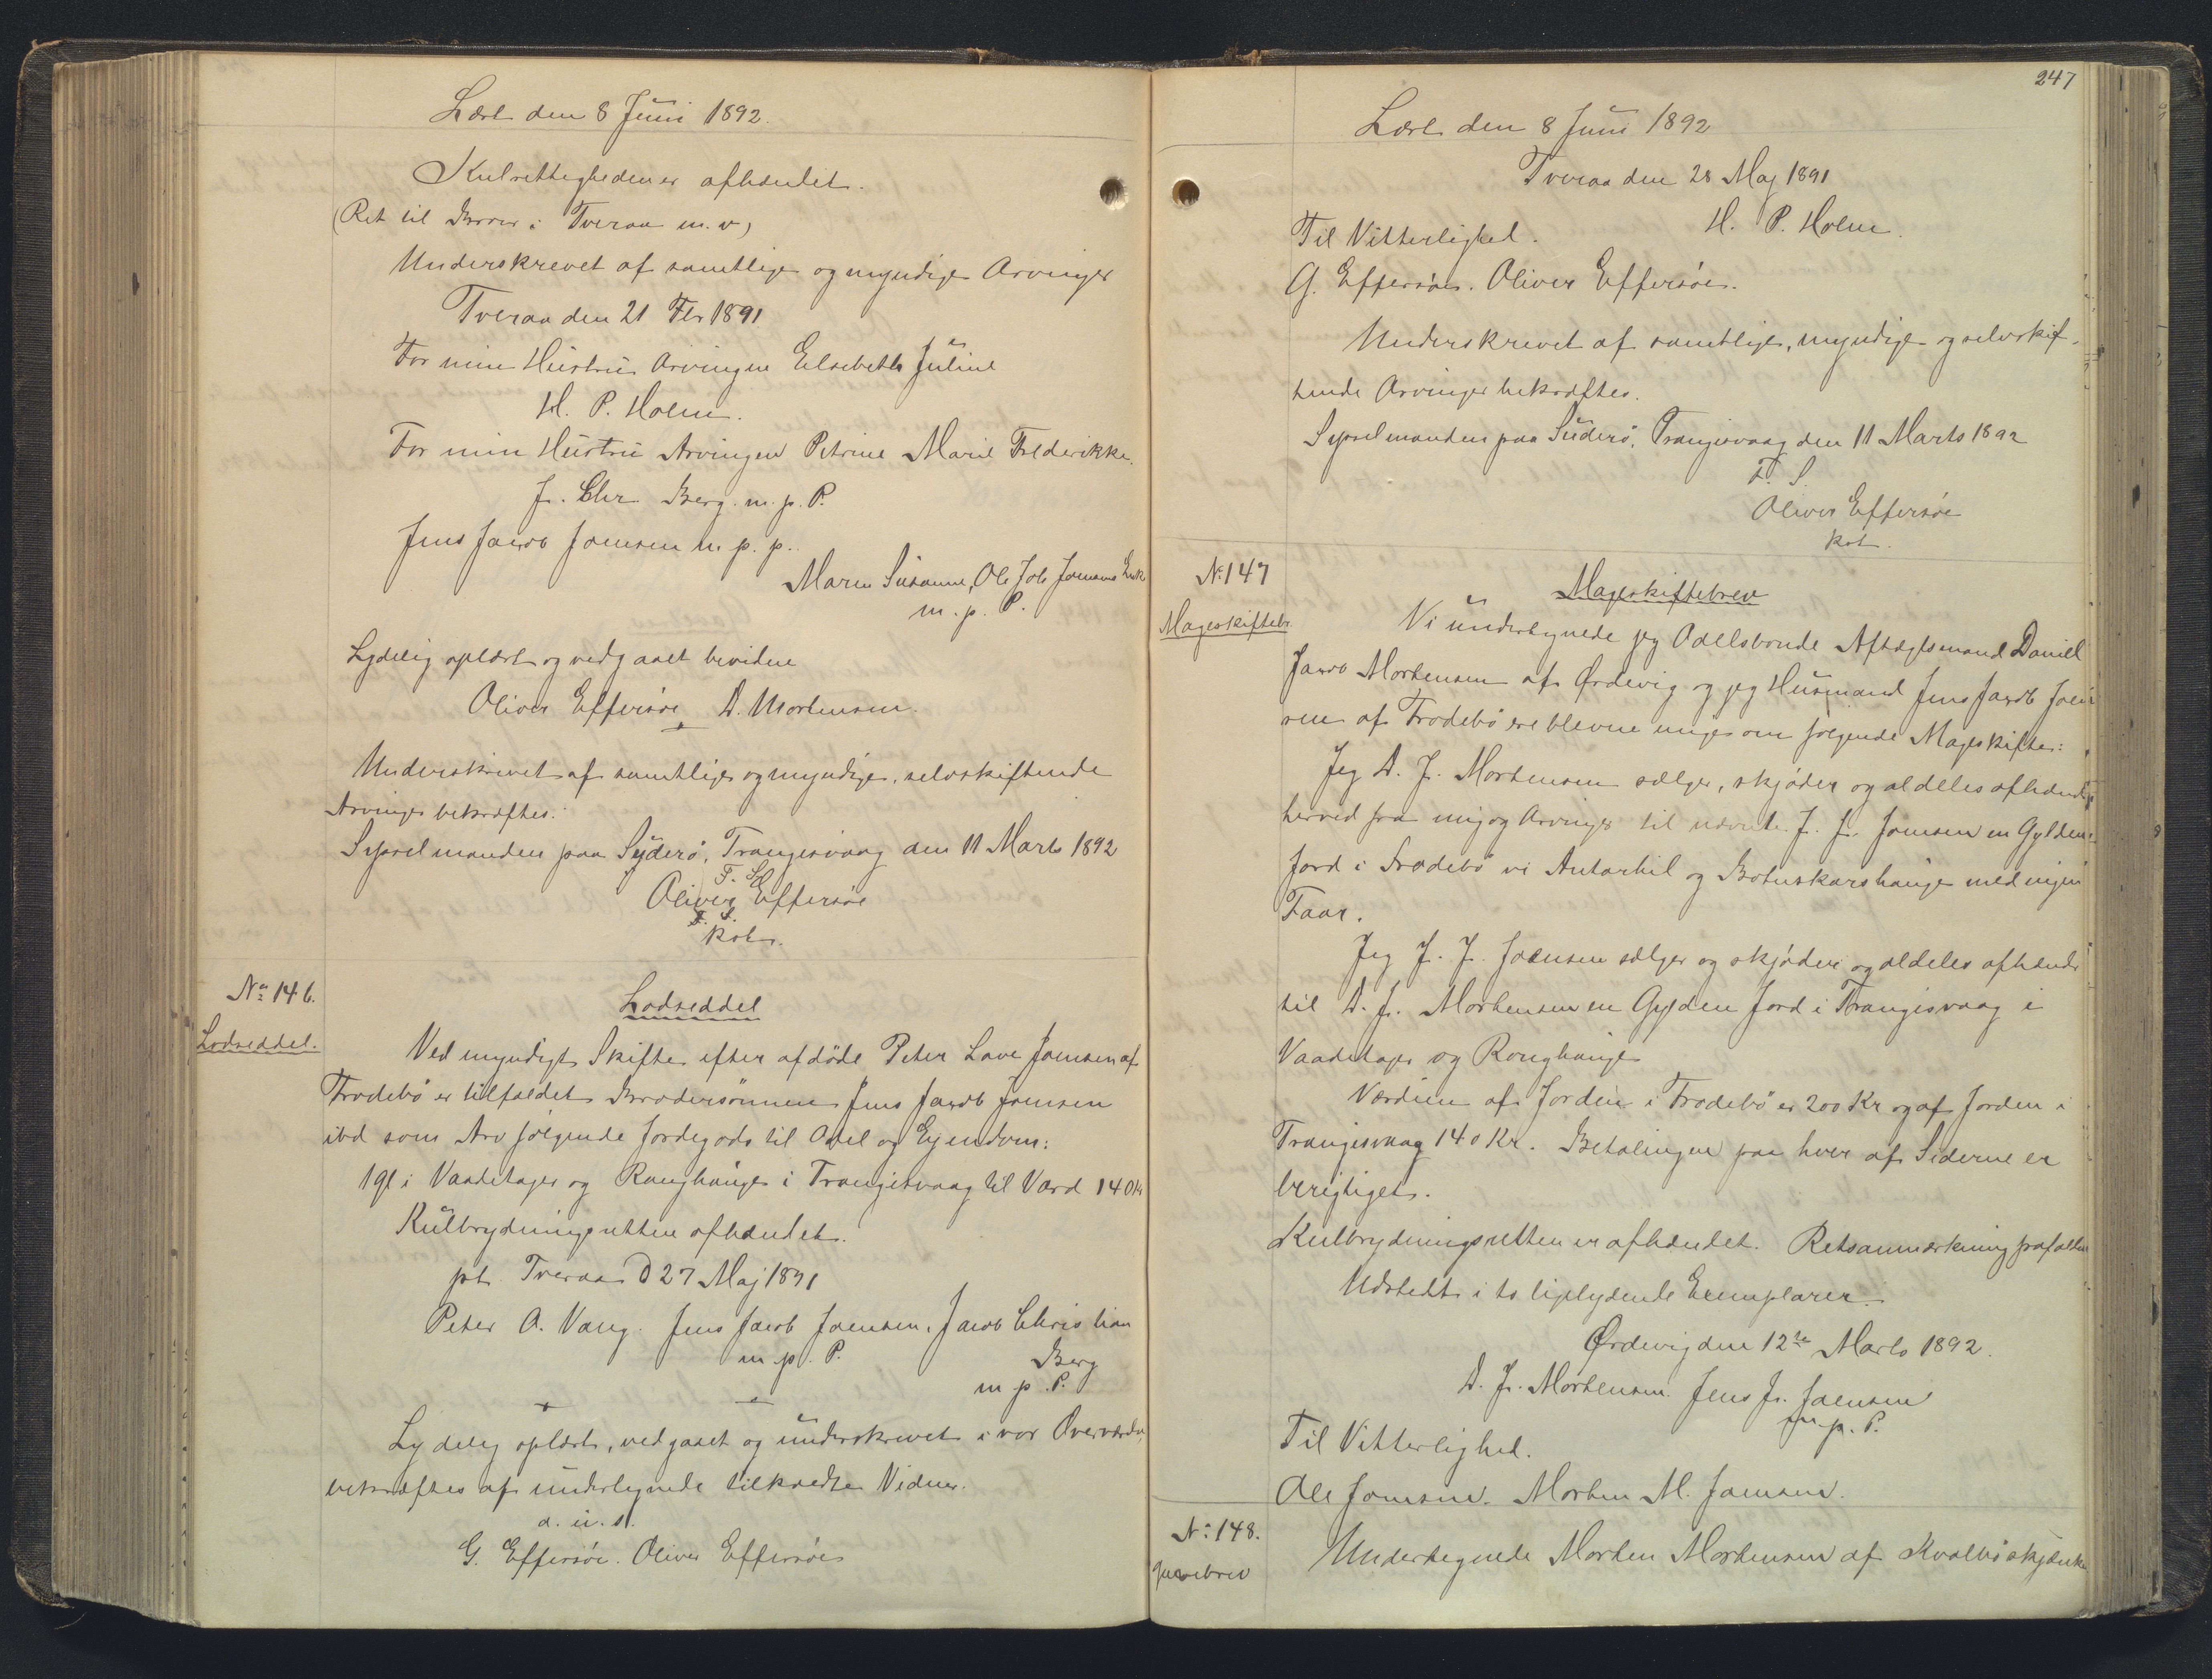 Læst den 8 Juni 1892.
Kulrettigheden er afhændet.
(Ret til i Tveraa m. v)
Underskrevet af samtlige og myndige Arvinger
Tveraa den 21 Fbr 1891
For min Hustru Arvingen Elsebeth Juline
H. P. Holm.
For min Hustru Arvingen Petrine Marie Frederikke.
J. Chr. Berg. m. p. P.
Jens Jacob Joensen m. p. p.
Maren Susanne, Ole Joh Joensens Enke
m. p. P.
Lydelig oplæst og vedgaaet bevidne
Oliver Effersöe D. Mortensen.
Underskrevet af samtlige og myndige, selvskiftende
Arvinger bekræftes.
Sysselmanden paa Syderö, Trangisvaag den 11 Marts 1892
F. S.
Oliver Effersöe
F. S.
kst.
No 146.
Lodseddel.
Lodseddel
Ved myndigt Skifte efter afdöde Peter Joensen af
Frodebö er tilfaldet Brodersönnen Jens Jacob Joensen
ibd som Arv fölgende Jordegods til Odel og Ejendom:
1 gl i Vaadetages og Ranghauge i Trangisvaag til Værd 140 Kr
Kulbrydningsretten afhændet.
pt. Tveraa D 27 Maj 1891
Peter A. Vang. Jens Jacob Joensen. Jacob Christian
m. p. P. Berg
m p. P.
Lydelig oplæst, vedgaaet og underskrevet i vor Overværelse,
bekræftes af undertegnede tilkaldte Vidner.
d. u. s.
G. Effersöe. Oliver Effersöe
247
Læst den 8 Juni 1892
Tveraa den 28 Maj 1891
H. P. Holm.
Til Vitterlighed.
G. Effersöe. Oliver Effersöe.
Underskrevet af samtlige, myndige og selvskif-
tende Arvinger bekræftes.
Sysselmanden paa Suderö, Trangisvaag den 11 Marts 1892
F. S.
Oliver Effersöe
kst.
No: 147
Mageskiftebr.
Mageskiftebrev
Vi undertegnede jeg Odelsbonde Aftægtsmand Daniel
Jacob Mortensen af Ørdevig og jeg Husmand Jens Jacob Joen-
sen af Frodebö ere blevne enige om fölgende Mageskifte:
Jeg D. J. Mortensen sælger, skjöder og aldeles afhænder
herved fra mig og Arvinger til nævnte J. J. Joensen en Gylden
Jord i Frodebö vi Antarhil og Botnskarshauge med ingen
Faar.
Jeg J. J. Joensen sælger og skjöder og aldeles afhænder
til D. J. Mortensen en Gylden Jord i Trangisvaag i
Vaadetages og Ronghauge
Værdien af Jorden i Frodebö er 200 Kr og af Jorden i
Trangisvaag 140 Kr. Betalingen paa hver af Siderne er
berigtiget.
Kulbrydningsretten er afhændet. Retsanmærkning frafalder
Udstedt i to ligelydende Exemplarer.
Ørdevig den 12te Marts 1892.
D. J. Mortensen. Jens J. Joensen
m. p. P.
Til Vitterlighed.
Ole Joensen. Morten M. Joensen.
No: 148.
Gavebrev
Undertegnede Morten Mortensen af Kvalbö skjænker